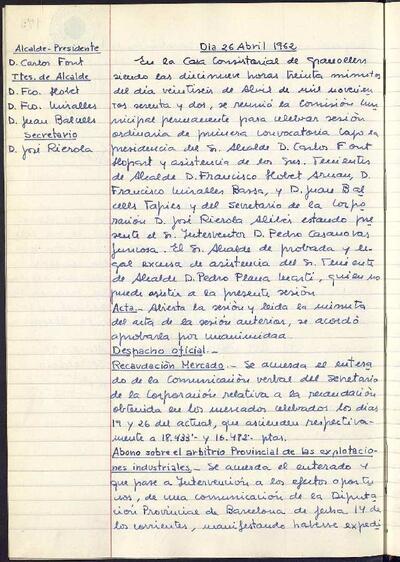 Alcalde-Presidente
D. Carlos Font
Ttes. de Alcalde
D. Fco. Llobet
D. Fco. Miralles
D. Juan Balcells
Secretario
D. José Rierola
Dia 26 Abril 1962
En la Casa Consistorial de Granollers
siendo las diecinueve horas treinta minutos
del día veintiseis de Abril de mil novecien
tos sesenta y dos, se reunió la Comisión Mu
nicipal permanente para celebrar sesión
ordinaria de primera convocatoria bajo la
presidencia del Sr. Alcalde D. Carlos Font
Llopart y asistencia de los Sres. Tenientes
de Alcalde D. Francisco Llobet Arnan, D.
Francisco Miralles Bassa, y D. Juan Bal
cells Tapies y del Secretario de la Corpo
ración D. José Rierola estando pre
sente el Sr. Interventor D. Pedro Casanovas
El Sr. Alcalde da probada y le
gal excusa de asistencia del Sr. Teniente
de Alcalde D. Pedro Plana quien no
puede asistir a la presente sesión
Acta.- Abierta la sesión y leida la minuta
del acta de la sesión anterior, se acordó
aprobarla por unanimidad.
Despacho oficial.-
Recaudación Mercado.- Se acuerda el entera
do de la Comunicación verbal del Secretario
de la Corporación relativa a la recaudación
obtenida en los mercados celebrados los dias
19 y 26 del actual, que ascienden respectiva-
mente a 18.433'- y 16.482'- ptas.
Abono sobre el arbitrio Provincial de las explotacio
nes industriales.- Se acuerda el enterado y
que pase a Intervención a los efectos oportu
nos, de una comunicación de la Diputa
ción Provincial de Barcelona de fecha 14 de
los corrientes, manifestando haberse expedi